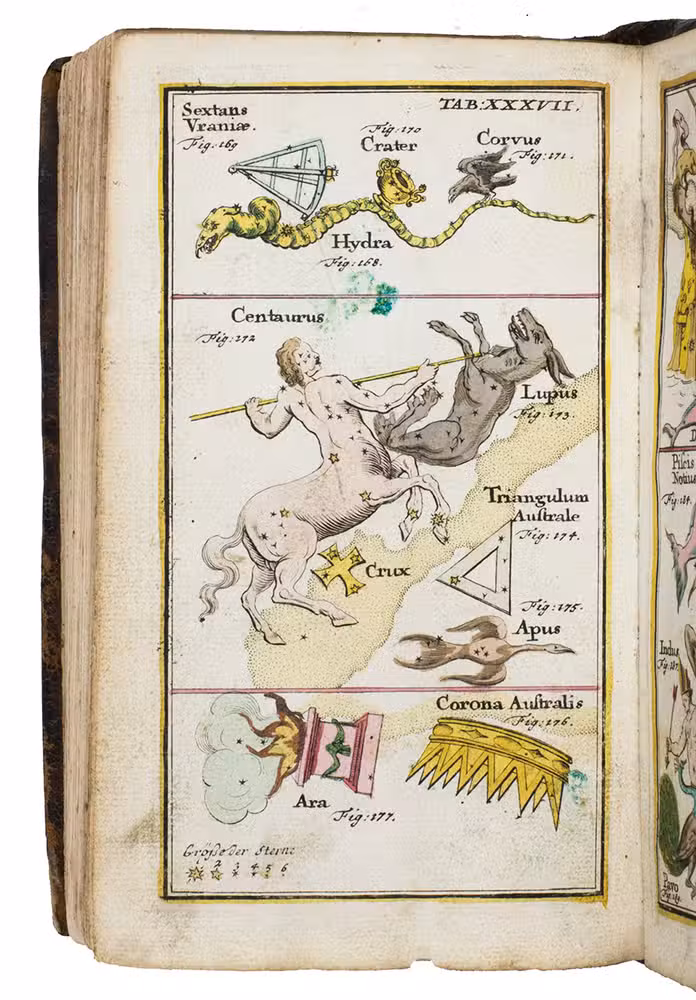 TAB:XXXVII.
Sextans
Vraniæ.
Fig: 169
Fig: 170
Crater
Corvus
Fig: 171.
Hydra
Fig: 168.
Centaurus
Fig: 172
Lupus
Fig: 173.
Triangulum
Australe
Fig: 174.
Crux
Fig: 175.
Apus
Corona Australis
Fig: 176.
Ara
Fig: 177.
Größe der Sterne
1 2 3 4 5 6
Piscis
Notius
Fig: 184.
Indus
Fig: 187.
Pavo